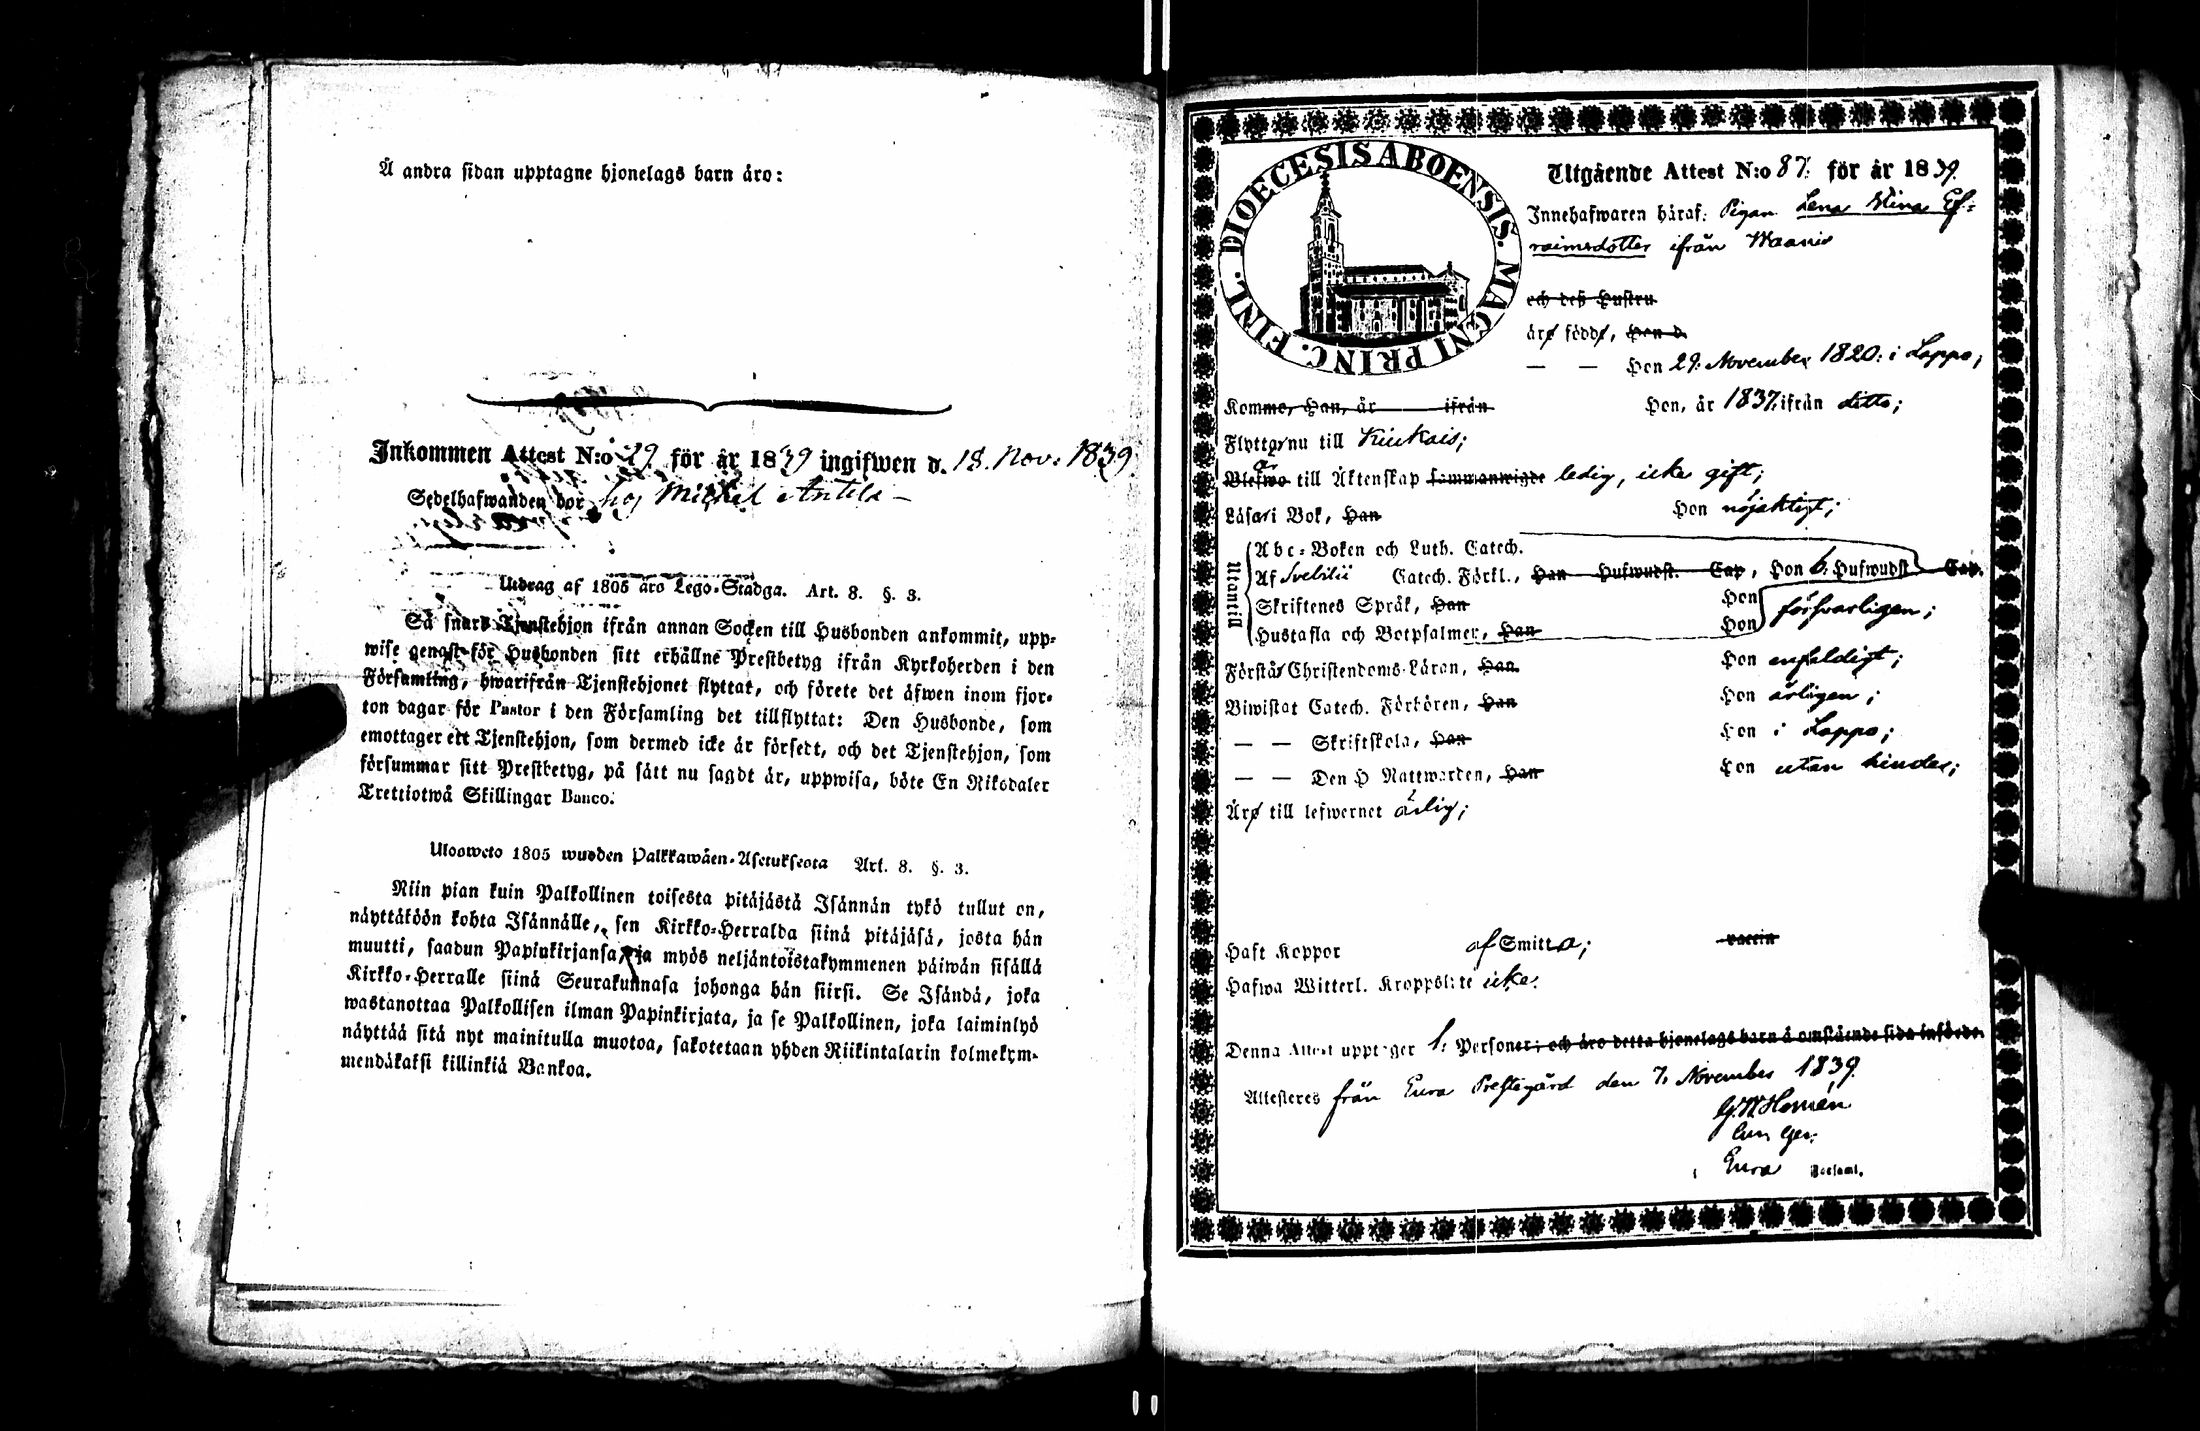 Å andra sidan upptagne hjonelags barn äro:
Inkommen Attest N:o 29 för år 1839 ingifwen d. 18. Nov: 1839
Sedelhafwanden bor hos Michel Anttila –
Utdrag af 1805 års Lego-Stadga. Art. 8. §. 3.
Så snart Tjenstehjon ifrån annan Socken till Husbonden ankommit, upp-
wise genast för Husbonden sitt erhållne Prestbetyg ifrån Kyrkoherden i den
Församling, hwarifrån Tjenstehjonet flyttat, och förete det äfwen inom fjor-
ton dagar för Pastor i den Församling det tillflyttat: Den Husbonde, som
emottager ett Tjenstehjon, som dermed icke är försedt, och det Tjenstehjon, som
försummar sitt Prestbetyg, på sätt nu sagdt är, uppwisa, böte En Riksdaler
Trettiotwå Skillingar Banco.
Ulosweto 1805 wuoden Palkkawäen-Asetuksesta Art. 8. §. 3.
Niin pian kuin Palkollinen toisesta pitäjästä Isännän tykö tullut on,
näyttäköön kohta Isännälle, sen Kirkko-Herralda siinä pitäjäsä, josta hän
muutti, saadun Papinkirjansa, ja myös neljäntoistakymmenen päiwän sisällä
Kirkko-Herralle siinä Seurakunnasa johonga hän siirsi. Se Isändä, joka
wastanottaa Palkollisen ilman Papinkirjata, ja se Palkollinen, joka laiminlyö
näyttää sitä nyt mainitulla muotoa, sakotetaan yhden Riikintalarin kolmekym-
mendäkaksi killinkiä Bankoa.
DIOECESIS ABOENSIS. MAGNI PRINC. FINL.
Utgående Attest N:o 87. för år 1839.
Innehafwaren häraf: Pigan Lena Stina Ef-
raimsdotter ifrån Waanis
och deß Hustru
äro födde, Han d.
— — Hon 29. November 1820: i Lappo;
Komme, Han, år ifrån Hon, år 1837, ifrån ditto;
Flyttar nu till Kiukais;
Blefwo till Äktenskap sammanwigde ledig, icke gift;
Läsa i Bok, Han Hon nöjaktigt;
Utantill
Abc-Boken och Luth. Catech.
Af Svebilii Catech. Förkl., Han Hufwudst. Cap, Hon 6. Hufwudst Cap.
Skriftenes Språk, Han Hon försvarligen;
Hustafla och Botpsalmer, Han Hon
Förstår Christendoms-Läran, Han Hon enfaldigt;
Biwistat Catech. Förhören, Han Hon årligen;
— — Skriftskola, Han Hon i Lappo;
— — Den H Nattwarden, Han Hon utan hinder;
Äro till lefwernet ärlig;
Haft Koppor af Smitta; vaccin
Hafwa Witterl. Kroppslyte icke.
Denna Attest upptager 1: Personer; och äro detta hjonelags barn å omstående sida införde.
Attesteres från Eura Prestegård den 7. November 1839.
G. W. Homén
Eura Församl.